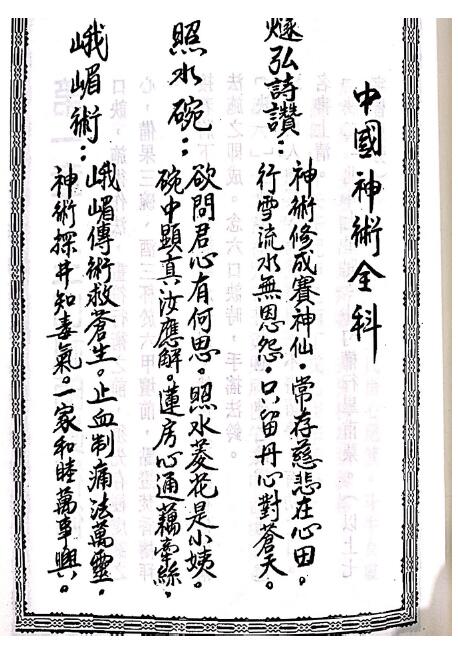 中國神術全科
燧弘詩讚：
神術修成賽神仙。常存慈悲在心田。
行雪流水無恩怨。只留丹心對蒼天。
照水碗：
欲問君心有何思。照水菱花是小姨。
碗中顯真汝應解。蓮房心通藕高絲。
峨嵋術：
峨嵋傳術救蒼生。止血制痛法萬靈。
神術探井知毒氣。一家和睦萬事興。